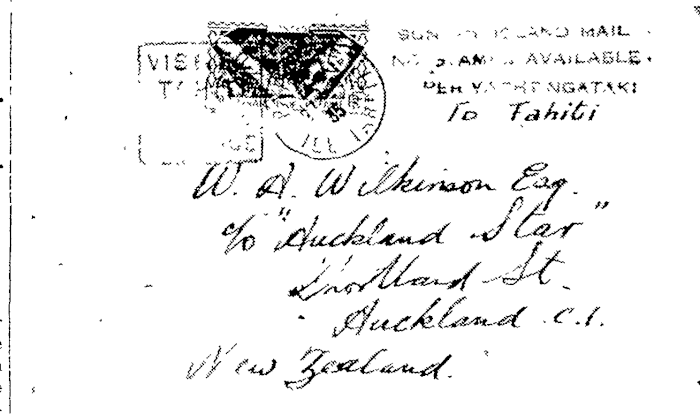 SUNDAY ISLAND MAIL
NO STAMPS AVAILABLE.
PER YACHT NGATAKI
To Tahiti
VISITEZ
TAHITI
W. A. Wilkinson Esq.
c/o "Auckland Star"
Shortland St.
Auckland C.1.
New Zealand.